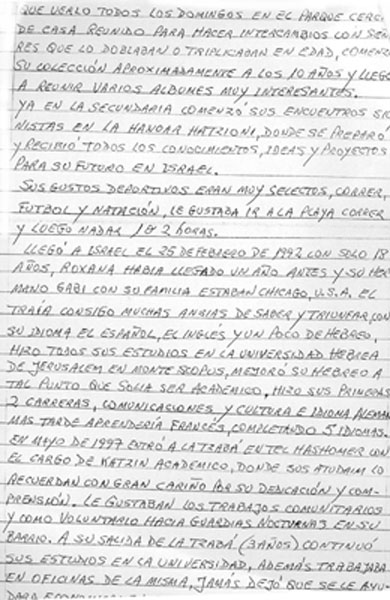 QUE VERLO TODOS LOS DOMINGOS EN EL PARQUE CERCA
DE CASA REUNIDO PARA HACER INTERCAMBIOS CON SEÑO
RES QUE LO DOBLABAN O TRIPLICABAN EN EDAD, COMENZO
SU COLECCIÓN APROXIMADAMENTE A LOS 10 AÑOS Y LLEGO
A REUNIR VARIOS ALBUMES MUY INTERESANTES.
YA EN LA SECUNDARIA COMENZÓ SUS ENCUENTROS SIO
NISTAS EN LA HANOAR HATZIONI, DONDE SE PREPARO
Y RECIBIÓ TODOS LOS CONOCIMIENTOS, IDEAS Y PROYECTOS
PARA SU FUTURO EN ISRAEL.
SUS GUSTOS DEPORTIVOS ERAN MUY SELECTOS, CORRER,
FUTBOL Y NATACIÓN, LE GUSTABA IR A LA PLAYA CORRER
Y LUEGO NADAR 1 Ó 2 HORAS.
LLEGÓ A ISRAEL EL 25 DE FEBRERO DE 1992 CON SOLO 18
AÑOS, ROXANA HABIA LLEGADO UN AÑO ANTES Y SU HER
MANO GABI CON SU FAMILIA ESTABAN CHICAGO, U.S.A. EL
TRAÍA CONSIGO MUCHAS ANSIAS DE SABER Y TRIUNFAR, CON
SU IDIOMA EL ESPAÑOL, EL INGLÉS Y UN POCO DE HEBREO,
HIZO TODOS SUS ESTUDIOS EN LA UNIVERSIDAD HEBREA
DE JERUSALEM EN MONTE SCOPUS, MEJORÓ SU HEBREO A
TAL PUNTO QUE SOLIA SER ACADEMICO, HIZO SUS PRIMERAS
2 CARRERAS, COMUNICACIONES Y CULTURA E IDIOMA ALEMAN
MAS TARDE APRENDERÍA FRANCÉS, COMPLETANDO 5 IDIOMAS.
EN MAYO DE 1997 ENTRÓ A LA TZABÁ EN TEL HASHOMER CON
EL CARGO DE KATZIN ACADEMICO, DONDE SUS LO
RECUERDAN CON GRAN CARIÑO POR SU DEDICACIÓN Y COM-
PRENSIÓN. LE GUSTABAN LOS TRABAJOS COMUNITARIOS
Y COMO VOLUNTARIO HACIA GUARDIAS NOCTURNAS EN SU
BARRIO. A SU SALIDA DE LA TRABÁ (3 AÑOS) CONTINUÓ
SUS ESTUDIOS EN LA UNIVERSIDAD, ADEMÁS TRABAJABA
EN OFICINAS DE LA MISMA, JAMAS DEJÓ QUE SE LE AYU